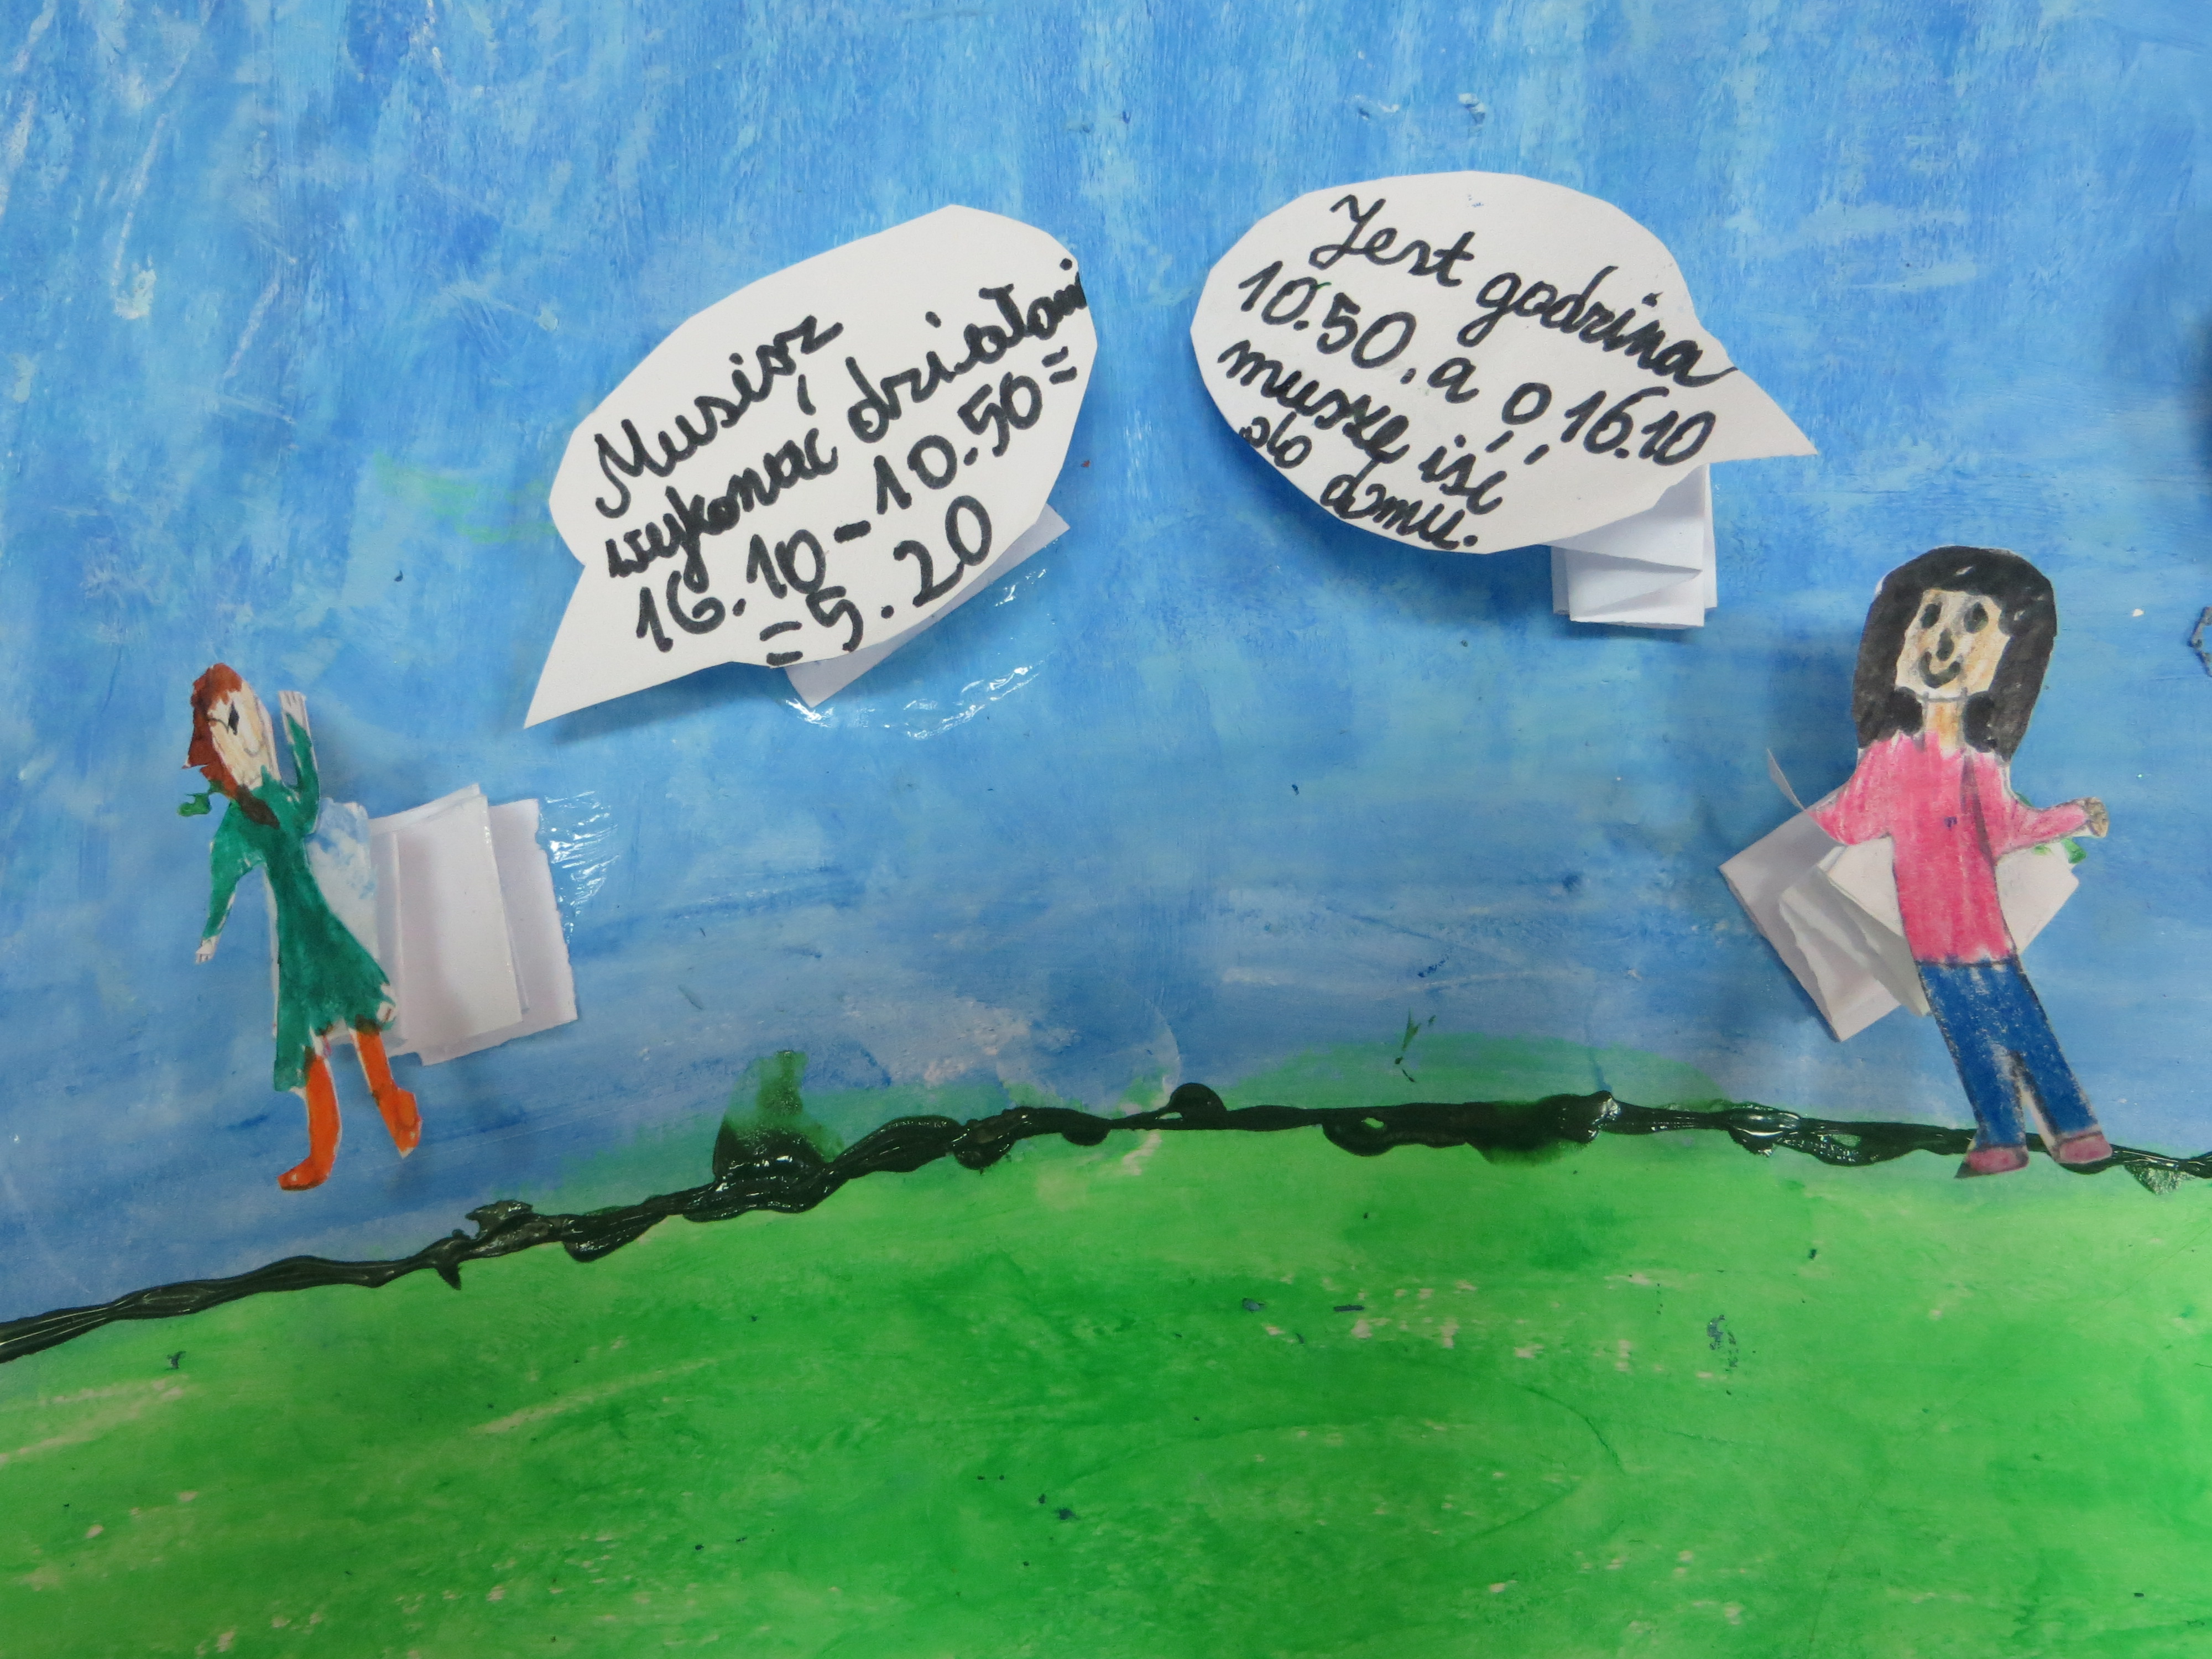 Musisz
wykonać działani
16.10-10.50=
=5.20
Jest godzina
10.50, a o 16.10
muszę iść
do domu.